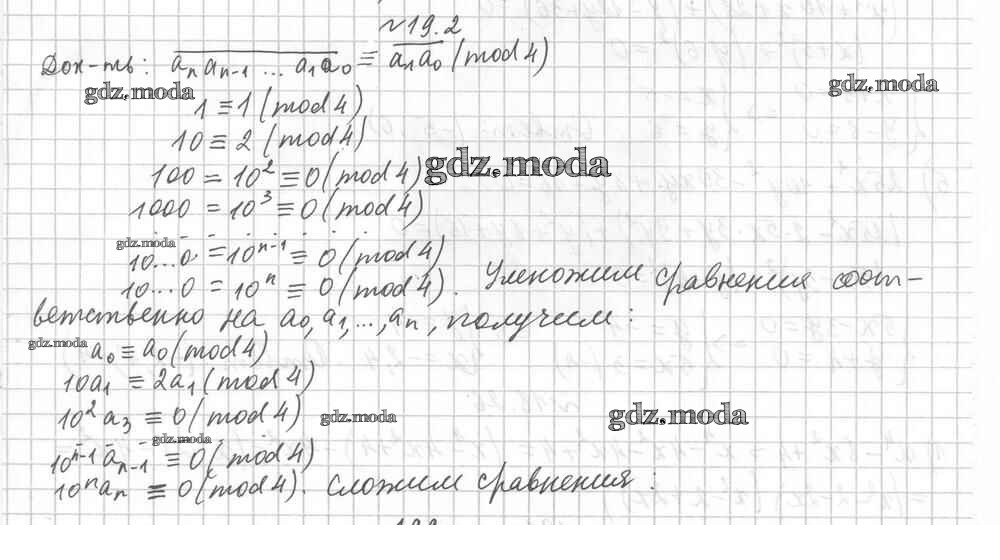 №19.2
Док-ть: \overline{a_n a_{n-1} ... a_1 a_0} ≡ \overline{a_1 a_0} (mod 4)
gdz.moda
gdz.moda
1 ≡ 1 (mod 4)
10 ≡ 2 (mod 4)
100 = 10² ≡ 0 (mod 4)
gdz.moda
1000 = 10³ ≡ 0 (mod 4)
gdz.moda
10...0 = 10ⁿ⁻¹ ≡ 0 (mod 4)
10...0 = 10ⁿ ≡ 0 (mod 4). Умножим сравнения соот-
ветственно на a₀, a₁, ..., aₙ, получим:
gdz.moda
a₀ ≡ a₀ (mod 4)
10a₁ ≡ 2a₁ (mod 4)
10² a₃ ≡ 0 (mod 4)
gdz.moda
gdz.moda
gdz.moda
10ⁿ⁻¹ aₙ₋₁ ≡ 0 (mod 4)
10ⁿ aₙ ≡ 0 (mod 4). Сложим сравнения: